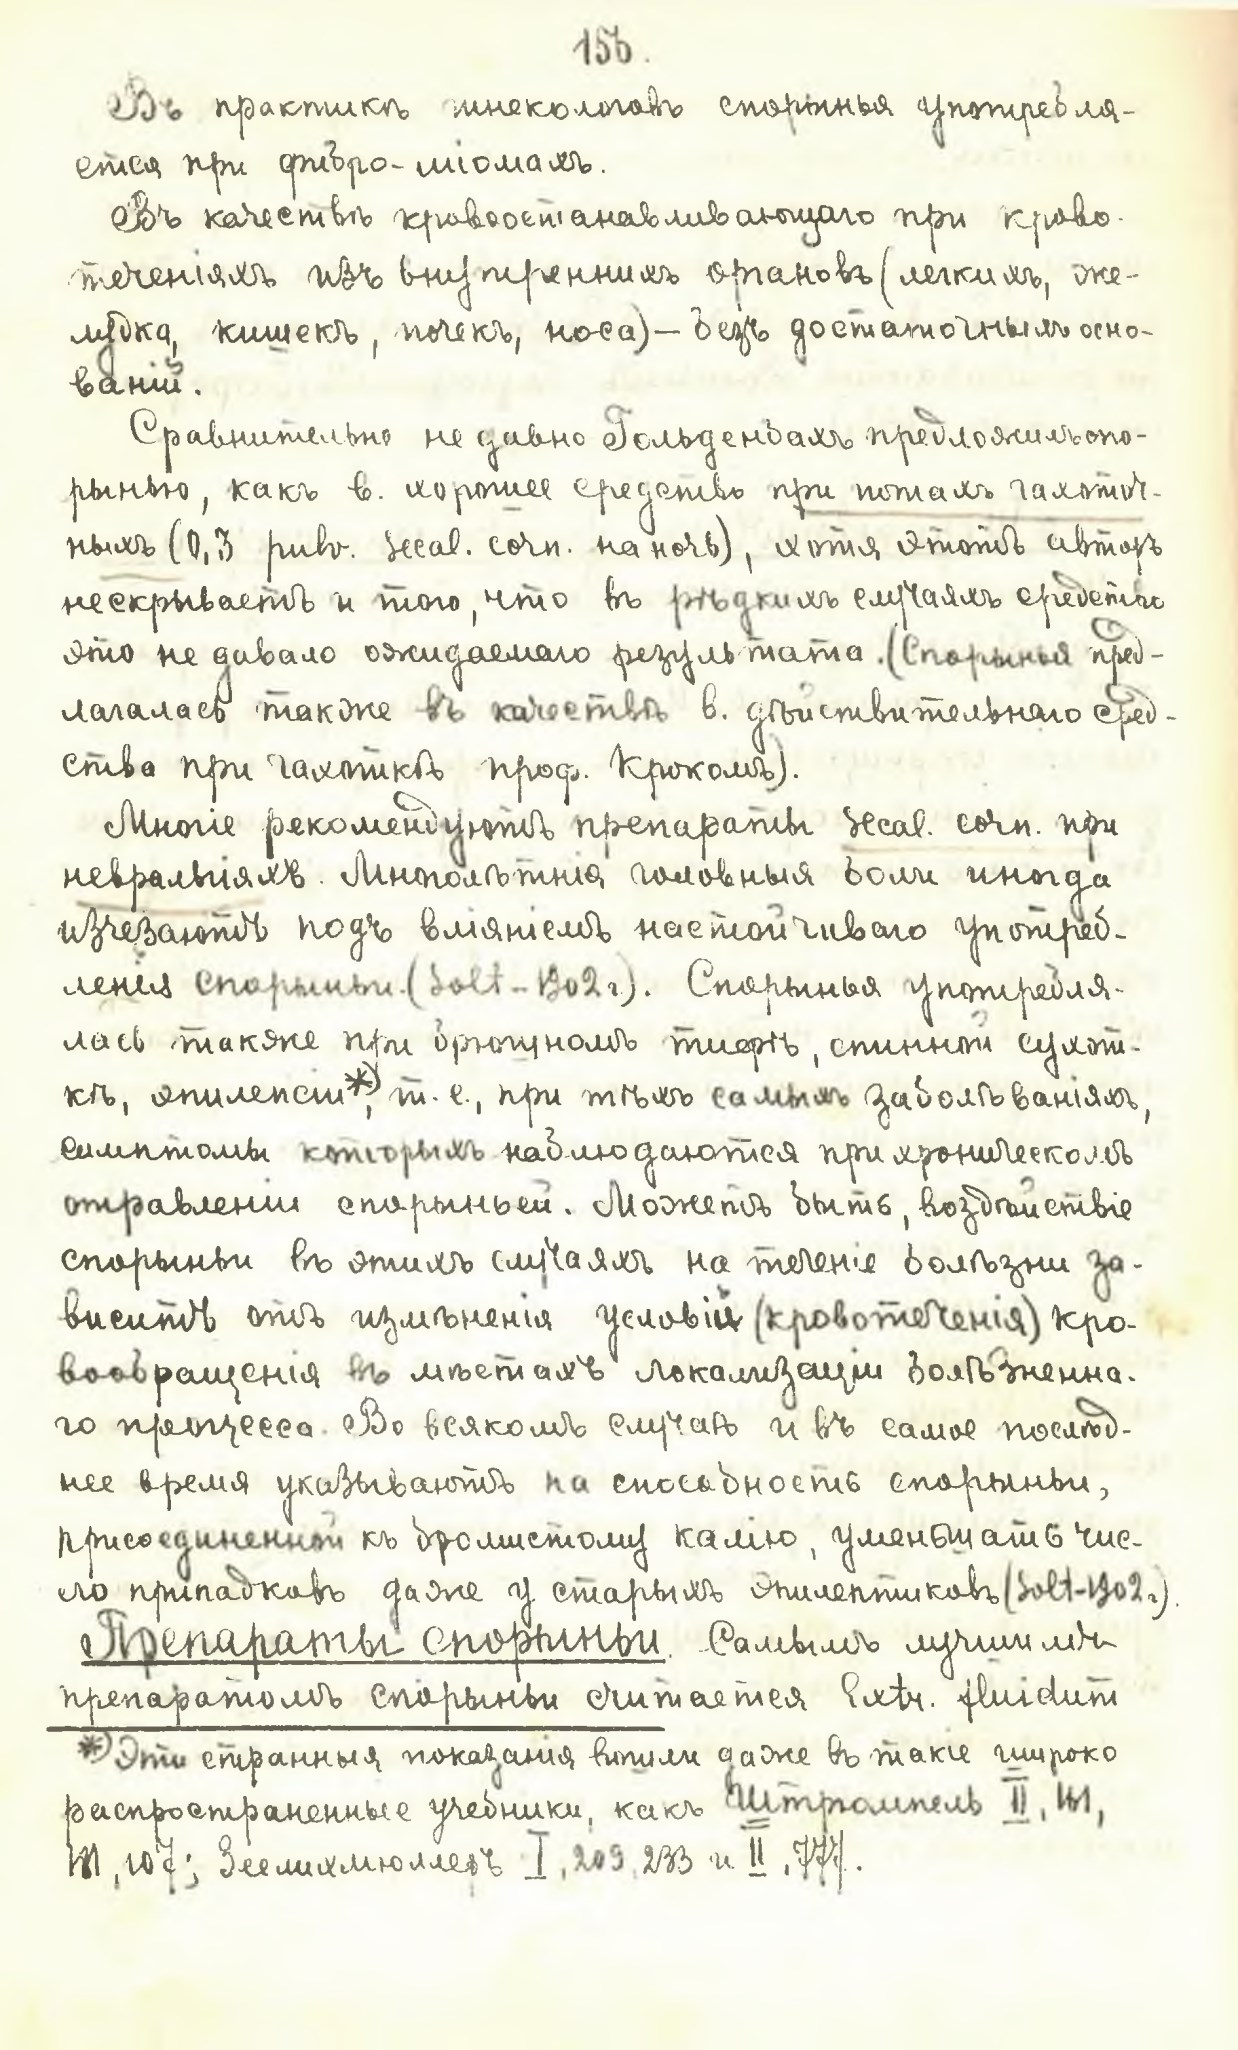 156.
Въ практикѣ гинекологовъ спорынья употребля-
ется при фибро-міомахъ.
Въ качествѣ кровоостанавливающаго при крово-
теченіяхъ изъ внутреннихъ органовъ (легкихъ, же-
лудка, кишекъ, почекъ, носа) — безъ достаточныхъ осно-
ваній.
Сравнительно не давно Гольденбахъ предложилъ спо-
рынью, какъ в. хорошее средство при потахъ чахоточ-
ныхъ (0,3 pulv. Secal. corn. на ночь), хотя этотъ авторъ
нескрываетъ и того, что въ рѣдкихъ случаяхъ средство
это не давало ожидаемаго результата. (Спорынья пред-
лагалась также въ качествѣ в. дѣйствительнаго сред-
ства при чахоткѣ проф. Крокомъ).
Многіе рекомендуютъ препараты Secal. corn. при
невралгіяхъ. Многолѣтнія головныя боли иногда
изчезаютъ подъ вліяніемъ настойчиваго употреб-
ленія спорыньи. (Solt - 1902 г.). Спорынья употребля-
лась также при брюшномъ тифѣ, спинной сухот-
кѣ, эпилепсіи*), т. е., при тѣхъ самыхъ заболѣваніяхъ,
симптомы которыхъ наблюдаются при хроническомъ
отравленіи спорыньей. Можетъ быть, воздѣйствіе
спорыньи въ этихъ случаяхъ на теченіе болѣзни за-
виситъ отъ измѣненія условій (кровотеченія) кро-
вообращенія въ мѣстахъ локализаціи болѣзненна-
го процесса. Во всякомъ случаѣ и въ самое послѣд-
нее время указываютъ на способность спорыньи,
присоединенной къ бромистому калію, уменьшать чис-
ло припадковъ даже у старыхъ эпилептиковъ (Solt-1902 г.).
Препараты спорыньи. Самымъ лучшимъ
препаратомъ спорыньи считается Extr. fluidum
*) Эти странныя показанія вошли даже въ такіе широко
распространенные учебники, какъ Штрюмпель II,
107; Зеелихмюллеръ I, 209, 233 и II, 777.